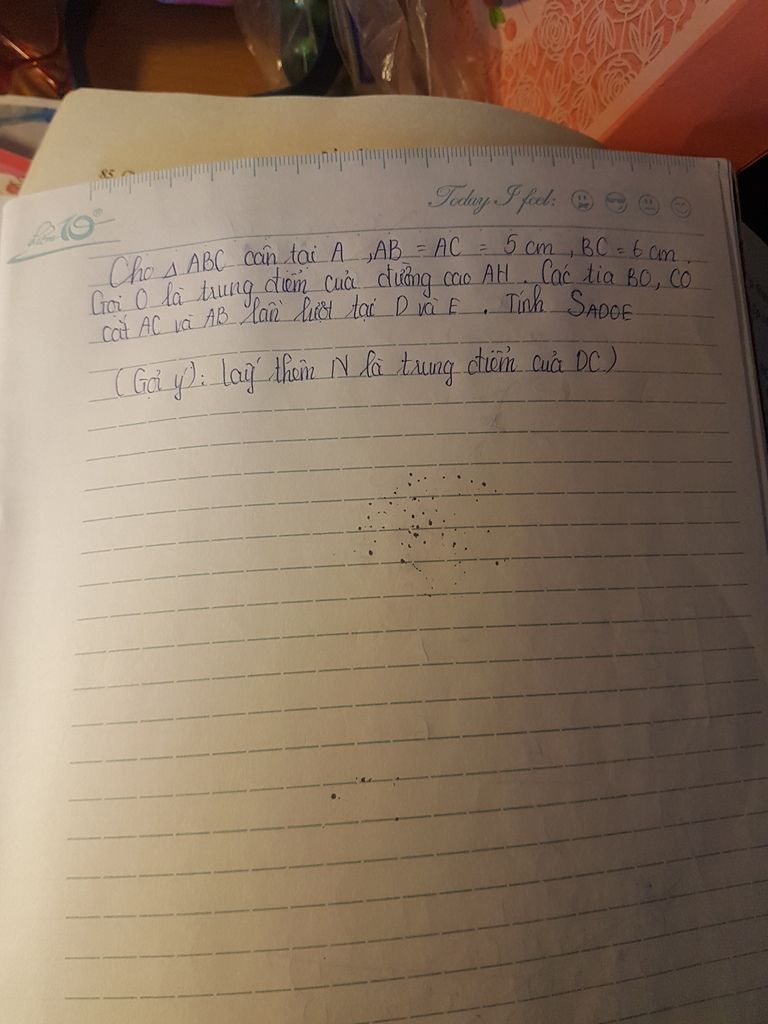 85.
điểm 10
Today I feel:
Cho Δ ABC cân tại A , AB = AC = 5 cm , BC = 6 cm .
Gọi O là trung điểm của đường cao AH . Các tia BO, CO
cắt AC và AB lần lượt tại D và E . Tính SADOE
(Gợi ý): lấy thêm N là trung điểm của DC)